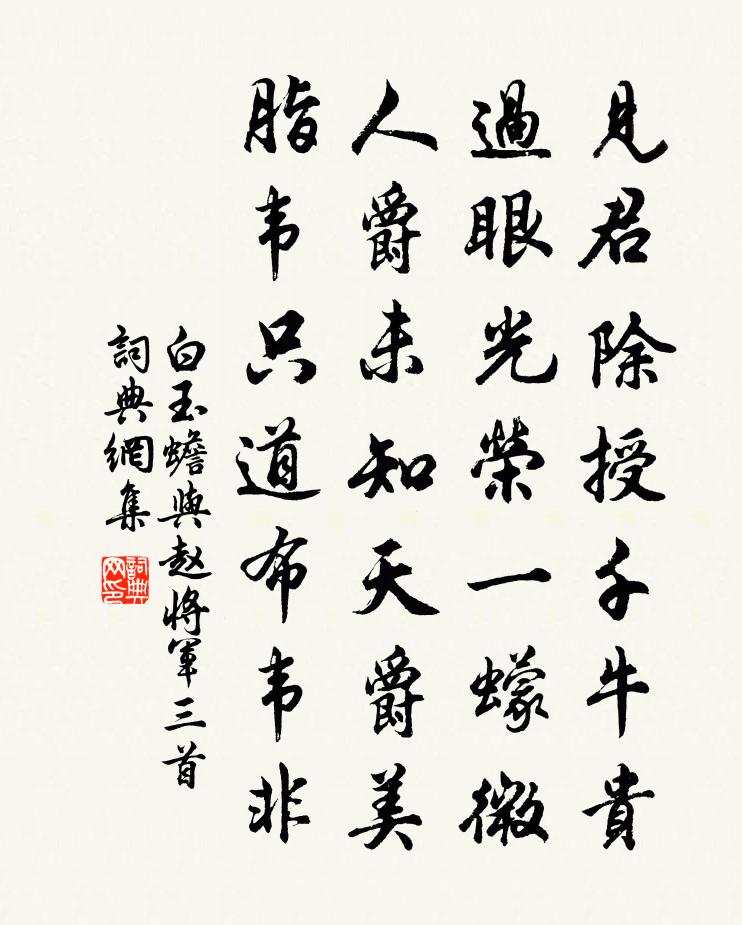 見君除授千牛貴
過眼光榮一蠓微
人爵未知天爵美
脂韦只道布韦非
白玉蟾與赵將軍三首
詞典網集
詞典网印